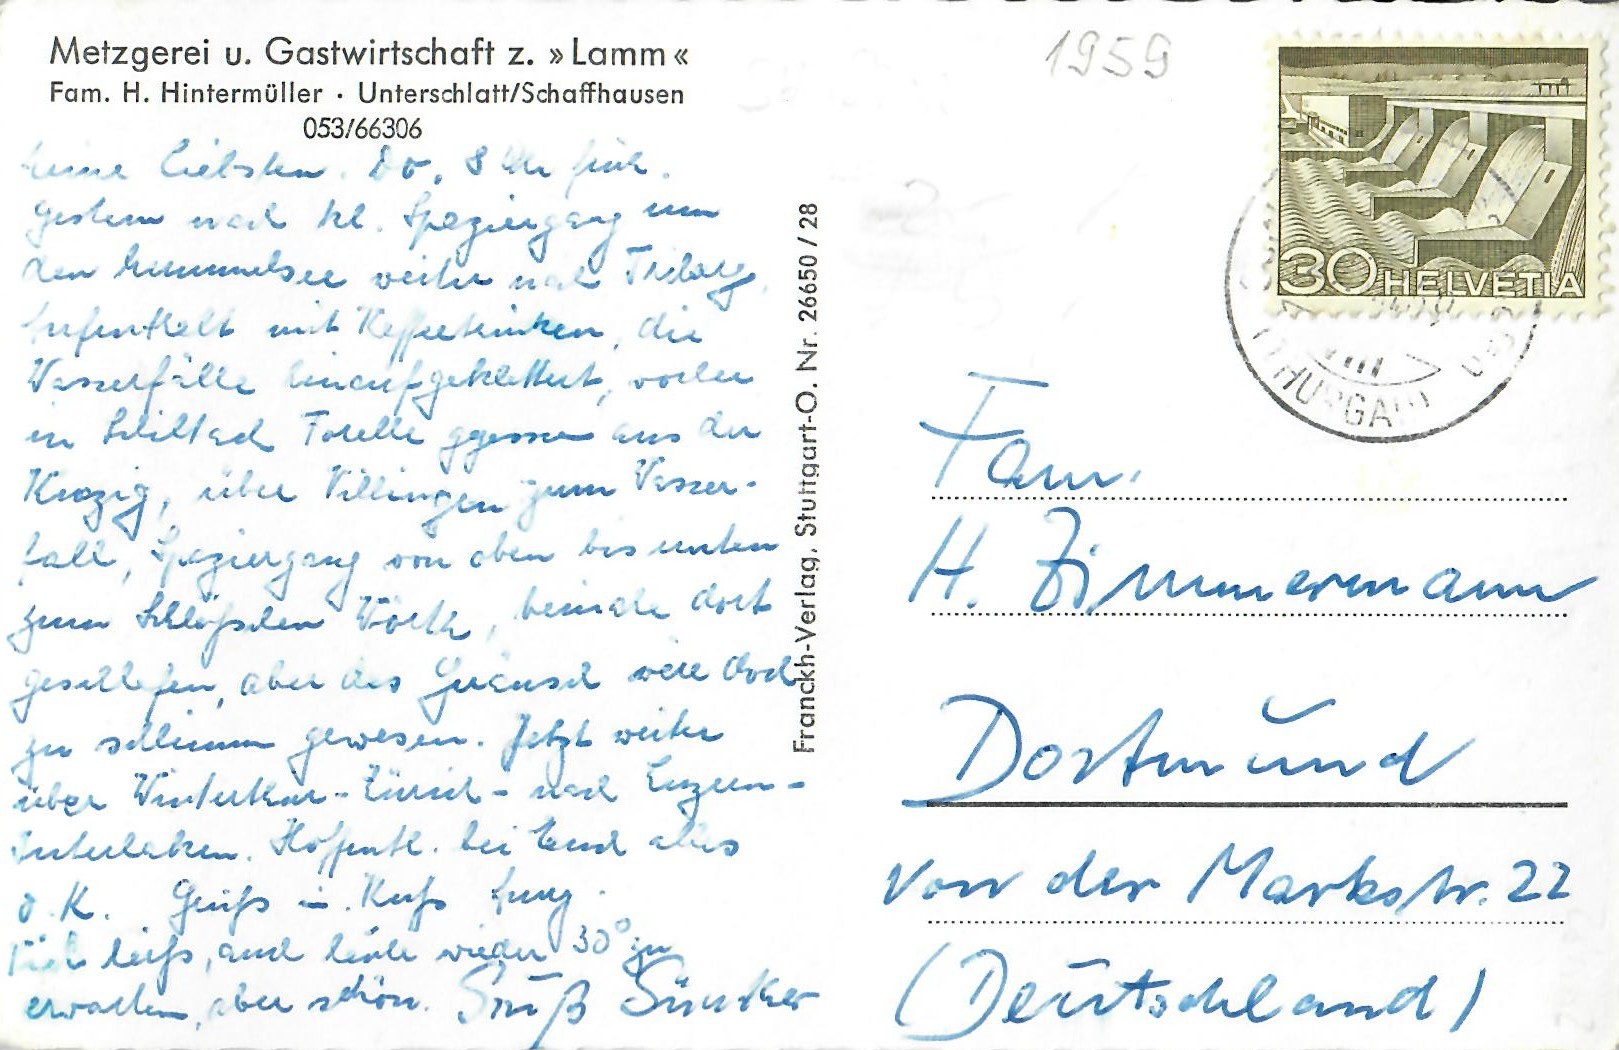 Metzgerei u. Gastwirtschaft z. »Lamm«
Fam. H. Hintermüller · Unterschlatt/Schaffhausen
053/66306
1959
30 HELVETIA
THURGAU
Meine Liebsten. Do, 8 Uhr früh.
Gestern nach kl. Spaziergang um
den Mummelsee weiter nach Triberg,
Aufenthalt mit Kaffeetrinken, die
Wasserfälle hinaufgeklettert, vorher
in Schiltach Forelle gegessen aus der
Kinzig, über Villingen zum Wasser-
fall, Spaziergang von oben bis unten
zum Schlößchen Wörth, beinahe dort
geschlafen, aber das Geräusch wäre doch
zu schlimm gewesen. Jetzt weiter
über Winterthur - Zürich - nach Luzern -
Interlaken. Hoffentl. bei Euch alles
o.K. Gruß u. Kuß
heiß, auch heute wieder 30° zu
erwarten, aber schön. Gruß Günther
Franckh-Verlag, Stuttgart-O. Nr. 26650/28
Fam.
H. Zimmermann
Dortmund
Von der Markstr. 22
(Deutschland)